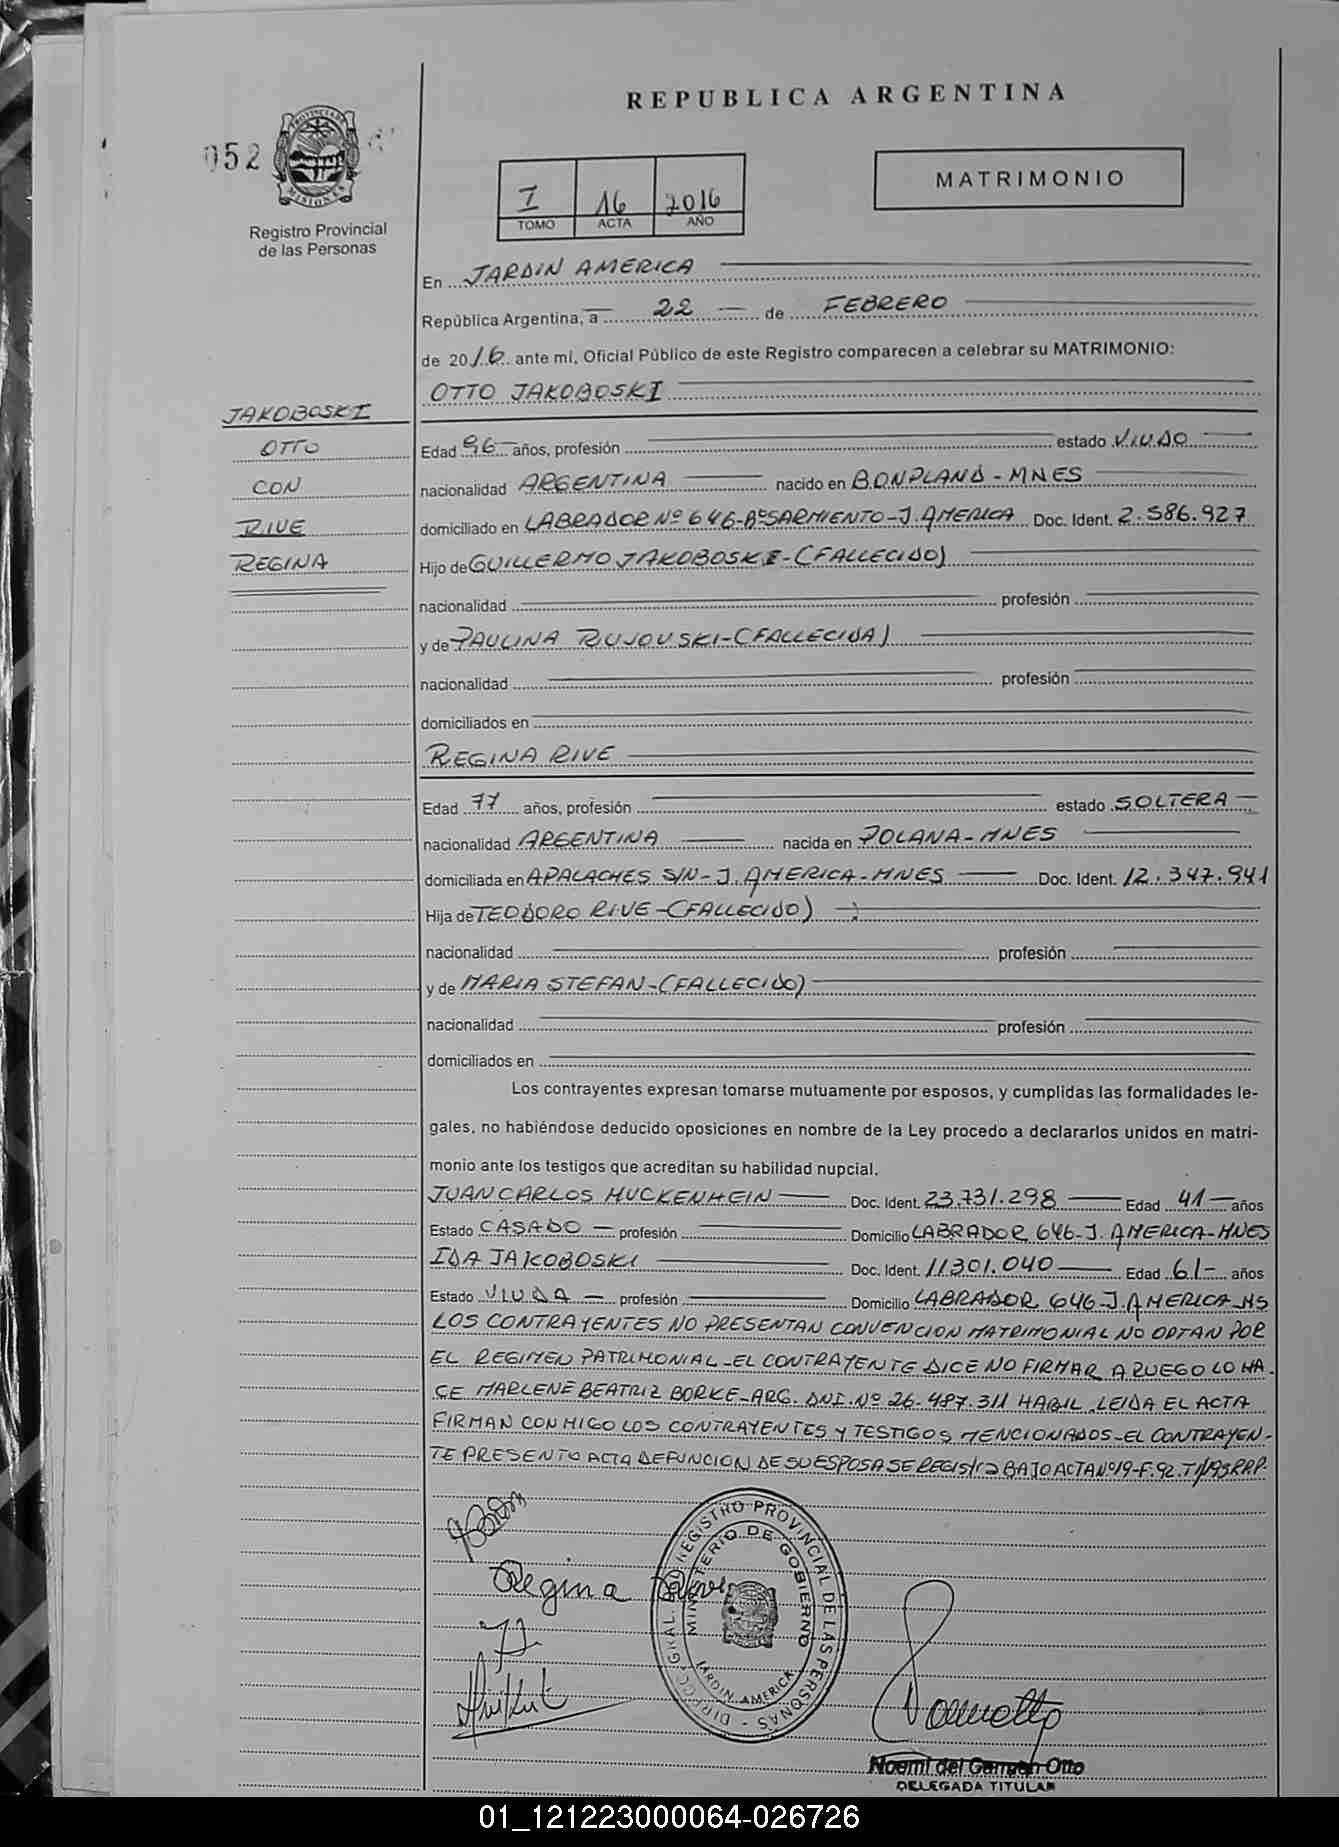 REPUBLICA ARGENTINA
052
PROVINCIA DE MISIONES
Registro Provincial
de las Personas
I 16 2016
TOMO ACTA AÑO
MATRIMONIO
En JARDIN AMERICA
República Argentina, a 22 de FEBRERO
de 2016 ante mí, Oficial Público de este Registro comparecen a celebrar su MATRIMONIO:
OTTO JAKOBOSKI
JAKOBOSKI
OTTO
CON
RIVE
REGINA
Edad 96 años, profesión estado VIUDO
nacionalidad ARGENTINA nacido en BONPLAND - MNES
domiciliado en LABRADOR Nº 646-BºSARMIENTO-J. AMERICA Doc. Ident. 2.586.927
Hijo de GUILLERMO JAKOBOSKI-(FALLECIDO)
nacionalidad profesión
y de PAULINA RUJOUSKI-(FALLECIDA)
nacionalidad profesión
domiciliados en
REGINA RIVE
Edad 77 años, profesión estado SOLTERA
nacionalidad ARGENTINA nacida en POLANA-MNES
domiciliada en APALACHES S/N-J. AMERICA-MNES Doc. Ident. 12.347.941
Hija de TEODORO RIVE-(FALLECIDO)
nacionalidad profesión
y de MARIA STEFAN-(FALLECIDO)
nacionalidad profesión
domiciliados en
Los contrayentes expresan tomarse mutuamente por esposos, y cumplidas las formalidades le-
gales, no habiéndose deducido oposiciones en nombre de la Ley procedo a declararlos unidos en matri-
monio ante los testigos que acreditan su habilidad nupcial.
JUAN CARLOS MUCKENHEIN Doc. Ident. 23.731.298 Edad 41 años
Estado CASADO profesión Domicilio LABRADOR 646-J. AMERICA-MNES
IDA JAKOBOSKI Doc. Ident. 11301.040 Edad 61 años
Estado VIUDA profesión Domicilio LABRADOR 646-J. AMERICA-MS
LOS CONTRAYENTES NO PRESENTAN CONVENCION MATRIMONIAL NO OPTAN POR
EL REGIMEN PATRIMONIAL-EL CONTRAYENTE DICE NO FIRMAR A RUEGO LO HA-
CE MARLENE BEATRIZ BORKE-ARG. DNI.Nº 26.487.311 HABIL LEIDA EL ACTA
FIRMAN CONMIGO LOS CONTRAYENTES Y TESTIGOS MENCIONADOS-EL CONTRAYEN-
TE PRESENTO ACTA DEFUNCION DE SU ESPOSA SE REGISTRA BAJO ACTA Nº19-F.92.
Regina
DIRECC. GRAL. DEL REGISTRO PROVINCIAL DE LAS PERSONAS
MINISTERIO DE GOBIERNO
JARDIN AMERICA
Noemi del Carmen Otto
DELEGADA TITULAR
01_121223000064-026726